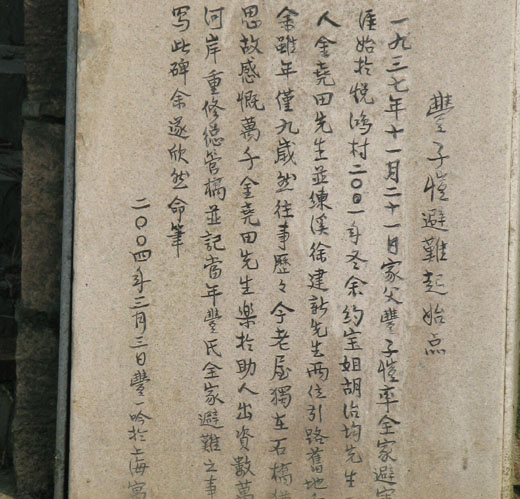 豐子愷避難起始点
一九三七年十一月二十一日家父豐子愷率全家避寇
涯始於悦鴻村二〇〇一年冬余约宝姐胡治均先生
人金堯田先生並練溪徐建新先生两位引路舊地
余雖年僅九歲然往事歷々今老屋獨在石橋
思故感慨萬千金堯田先生樂於助人出資數萬
河岸重修德管橋並記當年豐氏全家避難之事
写此碑余遂欣然命筆
二〇〇四年三月三日豐一吟於上海寓